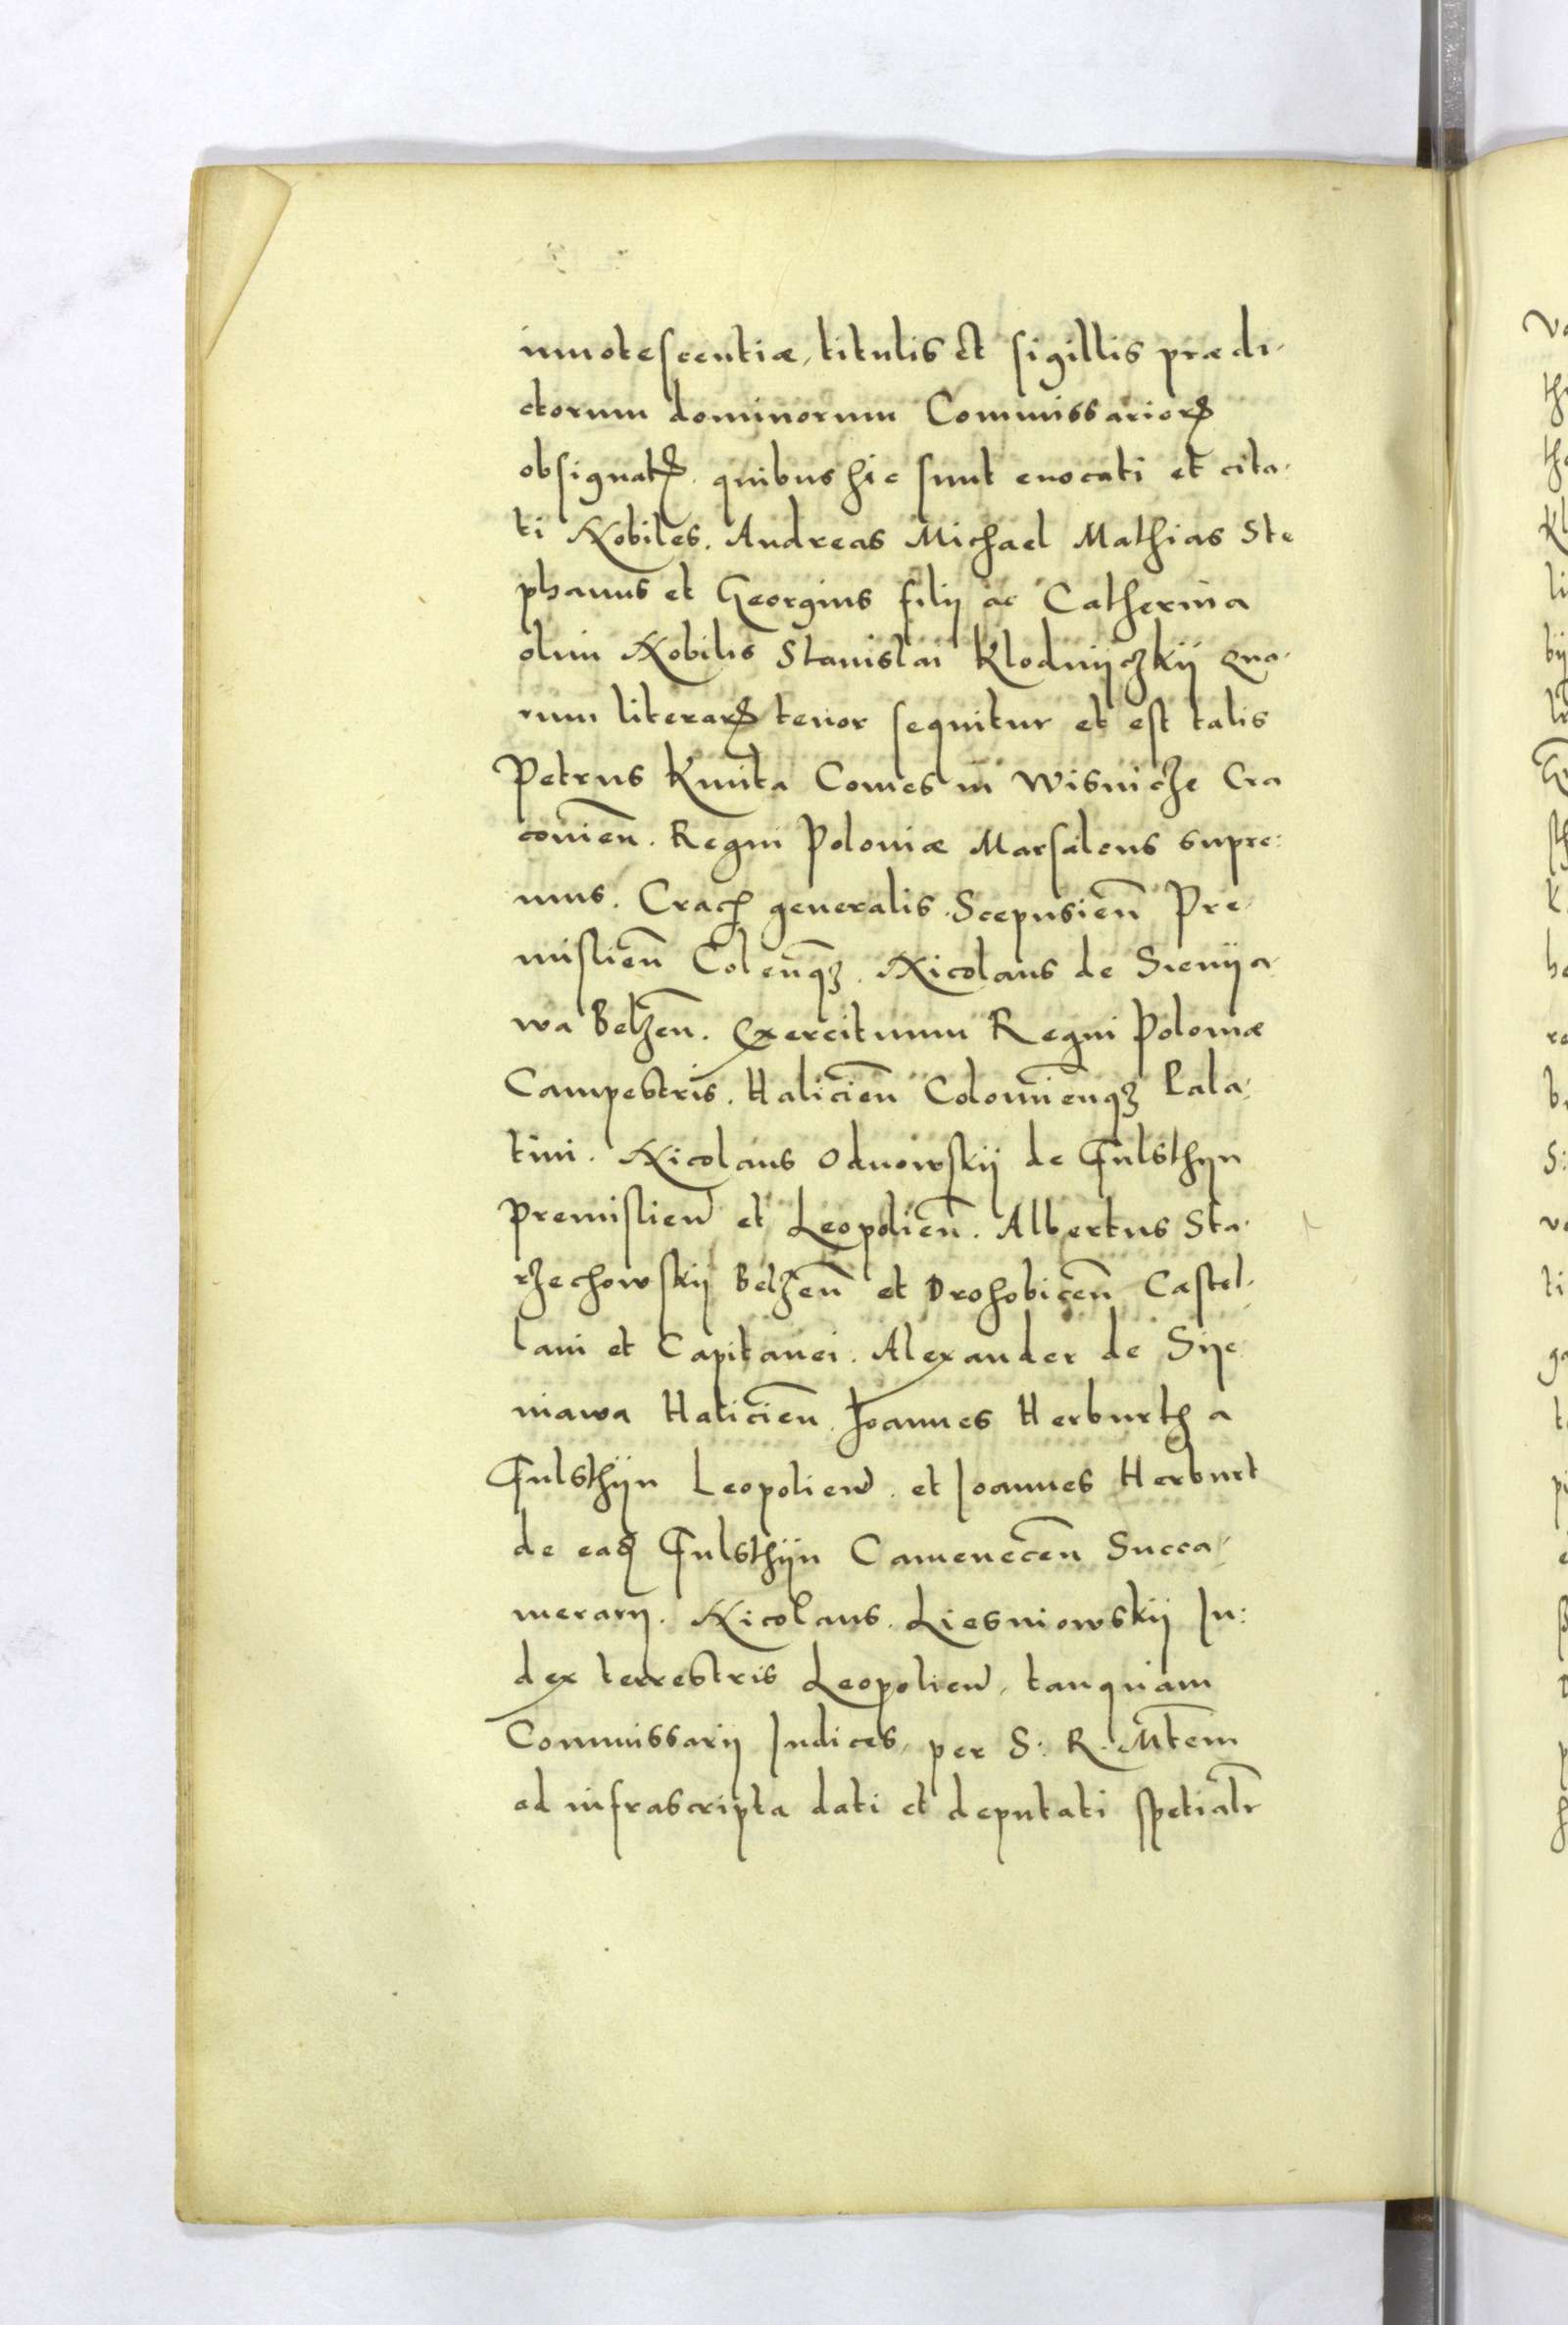 innotescentiæ, titulis et sigillis prædi-
ctorum dominorum Commissarioꝝ
obsignatꝝ. quibus hic sunt euocati et cita-
ti Nobiles. Andreas Michael Mathias Ste
phanus et Georgius filij ac Catherina
olim Nobilis Stanislai Klodnijczkij Quo-
rum literarꝝ tenor sequitur et est talis
Petrus Kmita Comes in Wisnicze Cra
couien̄. Regni Poloniæ Marsalcus supre:
mus. Crac̄ generalis. Scepusien̄ Pre-
mislien̄ Colen̄qꝫ. Nicolaus de Sienija-
wa Belzen̄. Exercituum Regni Poloniæ
Campestris. Halicien̄ Colomien̄qꝫ Pala-
tini. Nicolaus Odnowskij de Fulsthijn
Premislien̄ et Leopolien̄. Albertus Sta-
rzechowskij Belzen̄ et Drohobicen̄ Castel-
lani et Capitanei. Alexander de Sije
niawa Halicien̄. Joannes Herburth a
Fulsthijn Leopolien̄. et Joannes Herburt
de eađ Fulsthijn Camenecen̄ Succa-
merarij. Nicolaus. Liesniowskij Iu:
dex terrestris Leopolien̄, tanquam
Commissarij Iudices, per S: R. Mt̄em
ad infrascripta dati et deputati spetialr̄